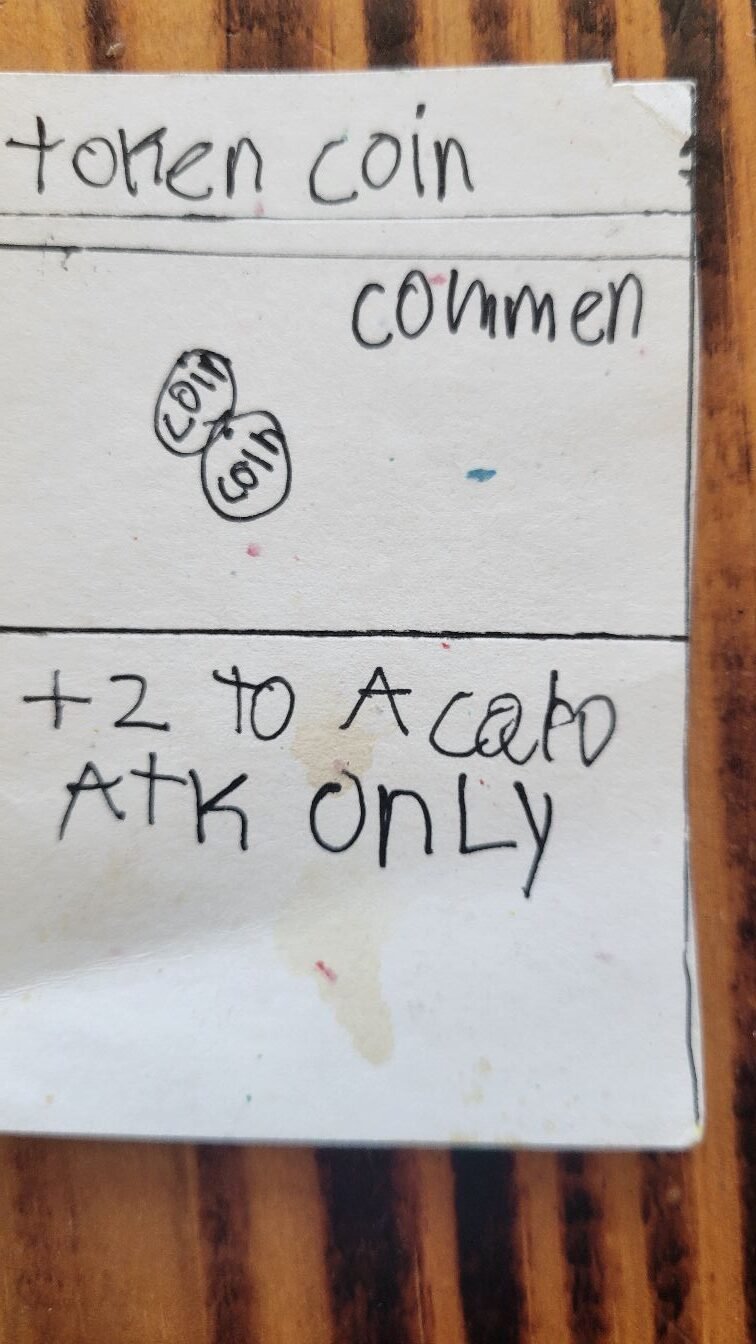 token coin
commen
coin
coin
+2 to A card
AtK onLy